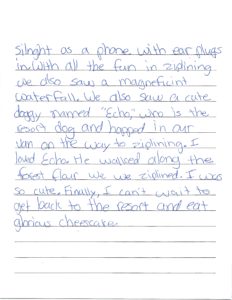 Silnght as a phone with ear plugs
in. With all the fun in ziplining
we also saw a magneficint
waterfall. We also saw a cute
doggy named "Echo," who is the
resort dog and hopped in our
van on the way to ziplining. I
loved Echo. He walked along the
forest flair we we ziplined. I was
so cute. Finally, I can't wait to
get back to the resort and eat
glorius cheescake.